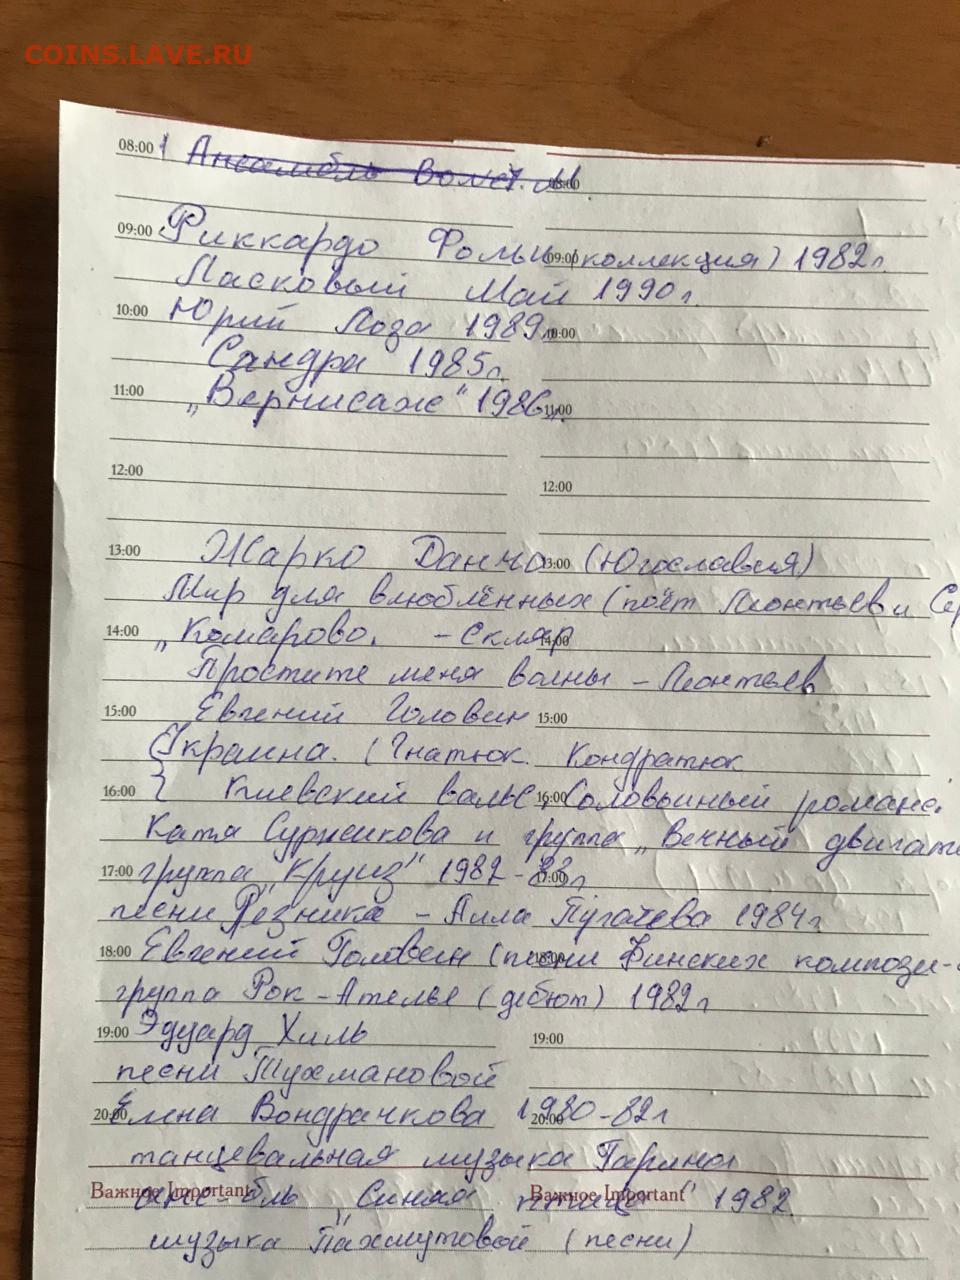 COINS.LAVE.RU
08:00 1 Ансамбль 08:00
09:00 Риккардо Фольи 09:00 (коллекция) 1982г.
Ласковый Май 1990г.
10:00 Юрий Лоза 1989г. 10:00
Сандра 1985г.
11:00 „Вернисаж" 1986г. 11:00
12:00 12:00
13:00 Жарко Данчо 13:00 (Югославия)
Мир для влюблённых (поёт Леонтьев и Сер
14:00 „Комарово. - Скляр 14:00
Простите меня волны - Леонтьев
15:00 Евгений Головин 15:00
Украина. (Гнатюк. Кондратюк
16:00 Киевский вальс, 16:00 Соловьиный романс.
Катя Суржикова и группа „Вечный двигате
17:00 группа „Круиз" 1982-83г 17:00
песни Резника - Алла Пугачева 1984г
18:00 Евгений Головин (песни 18:00 Финских компози-
группа Рок-Ателье (дебют) 1982г
19:00 Эдуард Хиль 19:00
песни Тухмановой
20:00 Елена Вондрачкова 1980-82г 20:00
танцевальная музыка Гарина
Важное Important Важное Important
анс-бль „Синяя птица" 1982
музыка Пахмутовой (песни)